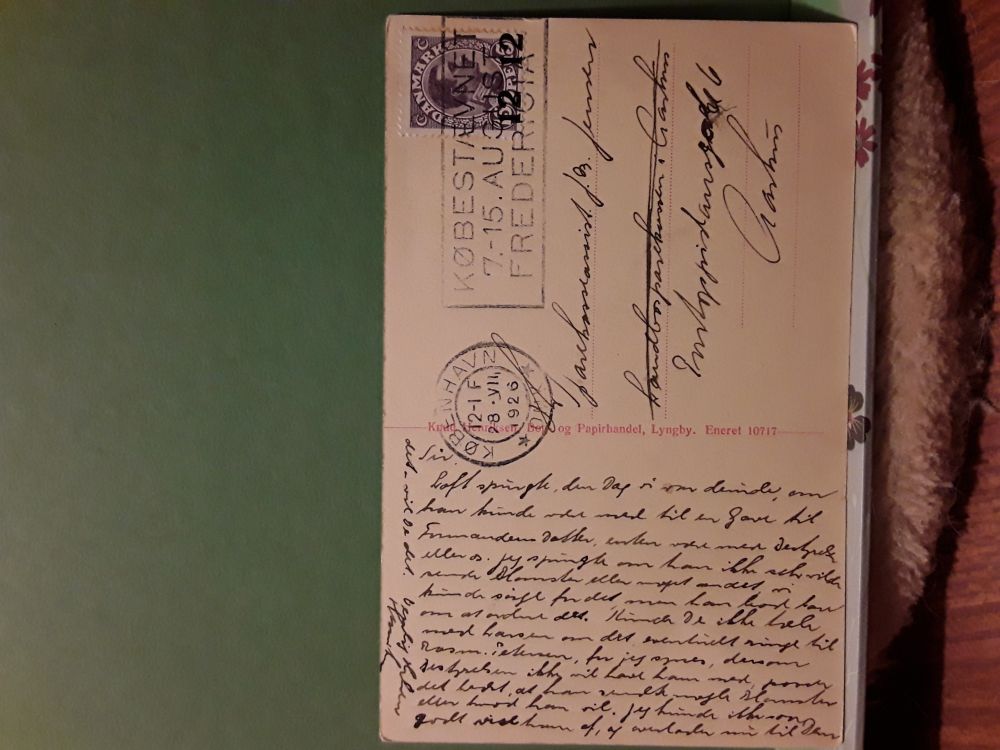 DANMARK
KØBESTÆVNET
7.-15. AUGUST
FREDERICIA
12 12
KØBENHAVN
12-1 F
28.VII
1926
Sparekasseassist. J. B. Jensen
Landbosparekassen i Aarhus
6
Aarhus
Knud Henriksen, Bog og Papirhandel, Lyngby. Eneret 10717
Toft spurgte, den Dag vi var derinde, om
han kunde være med til en Gave til
Formandens Datter, enten være med Bestyrelsen
eller os. Jeg spurgte om han ikke selv vilde
sende Blomster eller noget andet, vi
kunde sørge for det, men han bad bare
om at ordne det. Kunde De ikke tale
med Larsen om det, eventuelt ringe til
Rasm. Petersen, for jeg synes, dersom
Bestyrelsen ikke vil have ham med, passer
det bedst, at han sendte nogle Blomster
eller hvad han vil. Jeg kunde ikke saa
godt vise ham af, og overlader nu til Dem
det - vil De det.